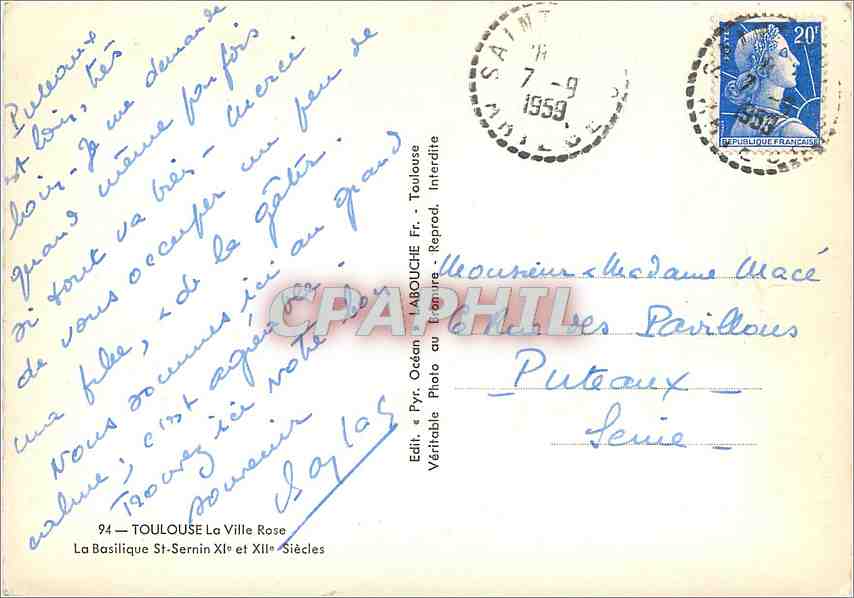 Puteaux
est loin, très
loin - Je me demande
quand même parfois
si tout va bien - Merci
de vous occuper un peu de
ma fille, - de la gâter.
Nous sommes ici au grand
calme, c'est agréable.
Trouvez ici notre bon
souvenir
94 — TOULOUSE La Ville Rose
La Basilique St-Sernin XIe et XIIe Siècles
Edit. « Pyr. Océan » LABOUCHE Fr. - Toulouse
Véritable Photo au Bromure - Reprod. Interdite
SAINT
7 -9
1959
ARIEGE
POSTES
20F
REPUBLIQUE FRANÇAISE
7
1959
Monsieur & Madame Macé
6 Rue des Pavillons
- Puteaux -
Seine -
CPAPHIL